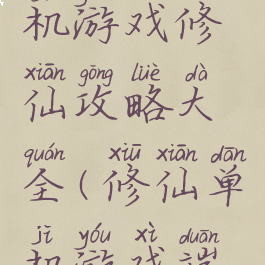 机游戏修
xiān gōng lüè dà
仙攻略大
quán xiū xiān dān
全(修仙单
jī yóu xì duān
机游戏端